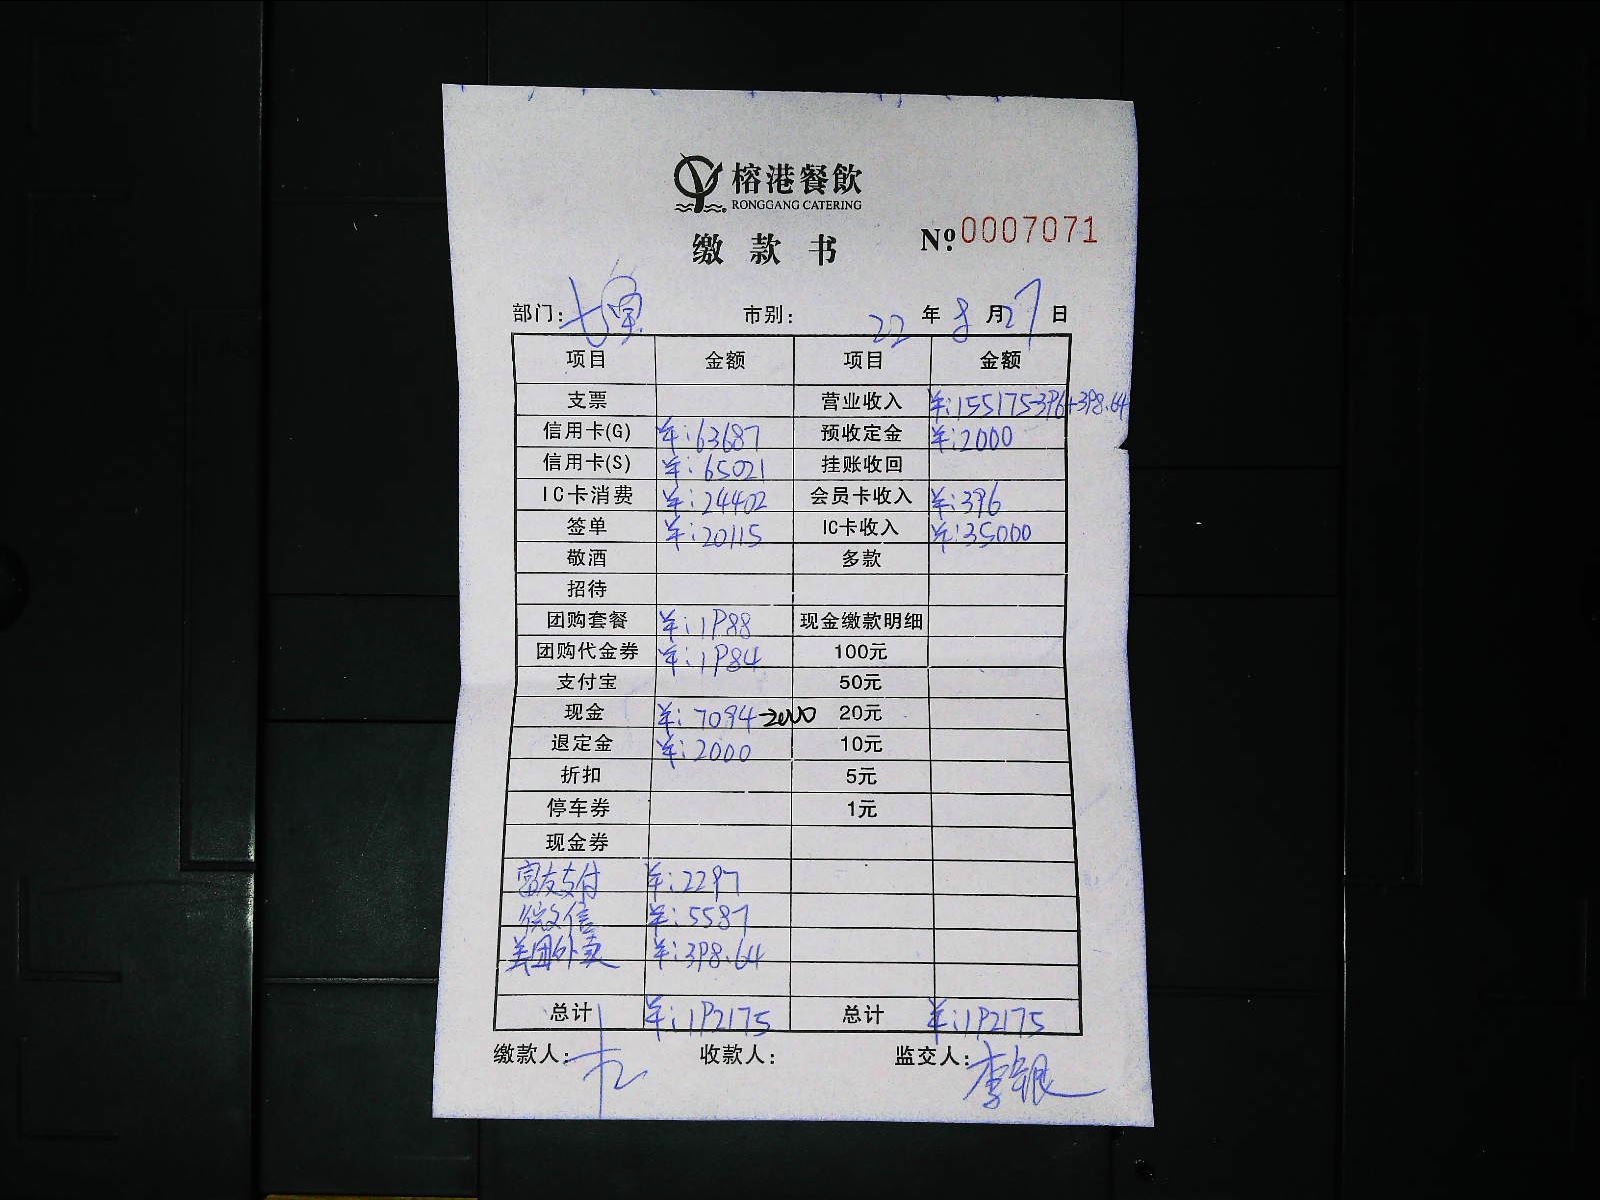 榕港餐飲
RONGGANG CATERING
缴款书
№ 0007071
部门: 市别: 22 年 8 月 27 日
项目 金额 项目 金额
支票 营业收入 ¥:155175-396+398.64
信用卡(G) ¥:63687 预收定金 ¥:2000
信用卡(S) ¥:65021 挂账收回
IC卡消费 ¥:24402 会员卡收入 ¥:396
签单 ¥:20115 IC卡收入 ¥:35000
敬酒 多款
招待
团购套餐 ¥:1988 现金缴款明细
团购代金券 ¥:1984 100元
支付宝 50元
现金 ¥:7094-2000 20元
退定金 ¥:2000 10元
折扣 5元
停车券 1元
现金券
富友支付 ¥:2297
微信 ¥:5587
美团外卖 ¥:398.64
总计 ¥:192175 总计 ¥:192175
缴款人: 收款人: 监交人: 李银